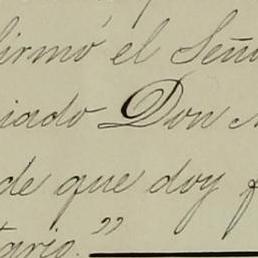 firmó el Seño
iado Don
de que doy f
tario."